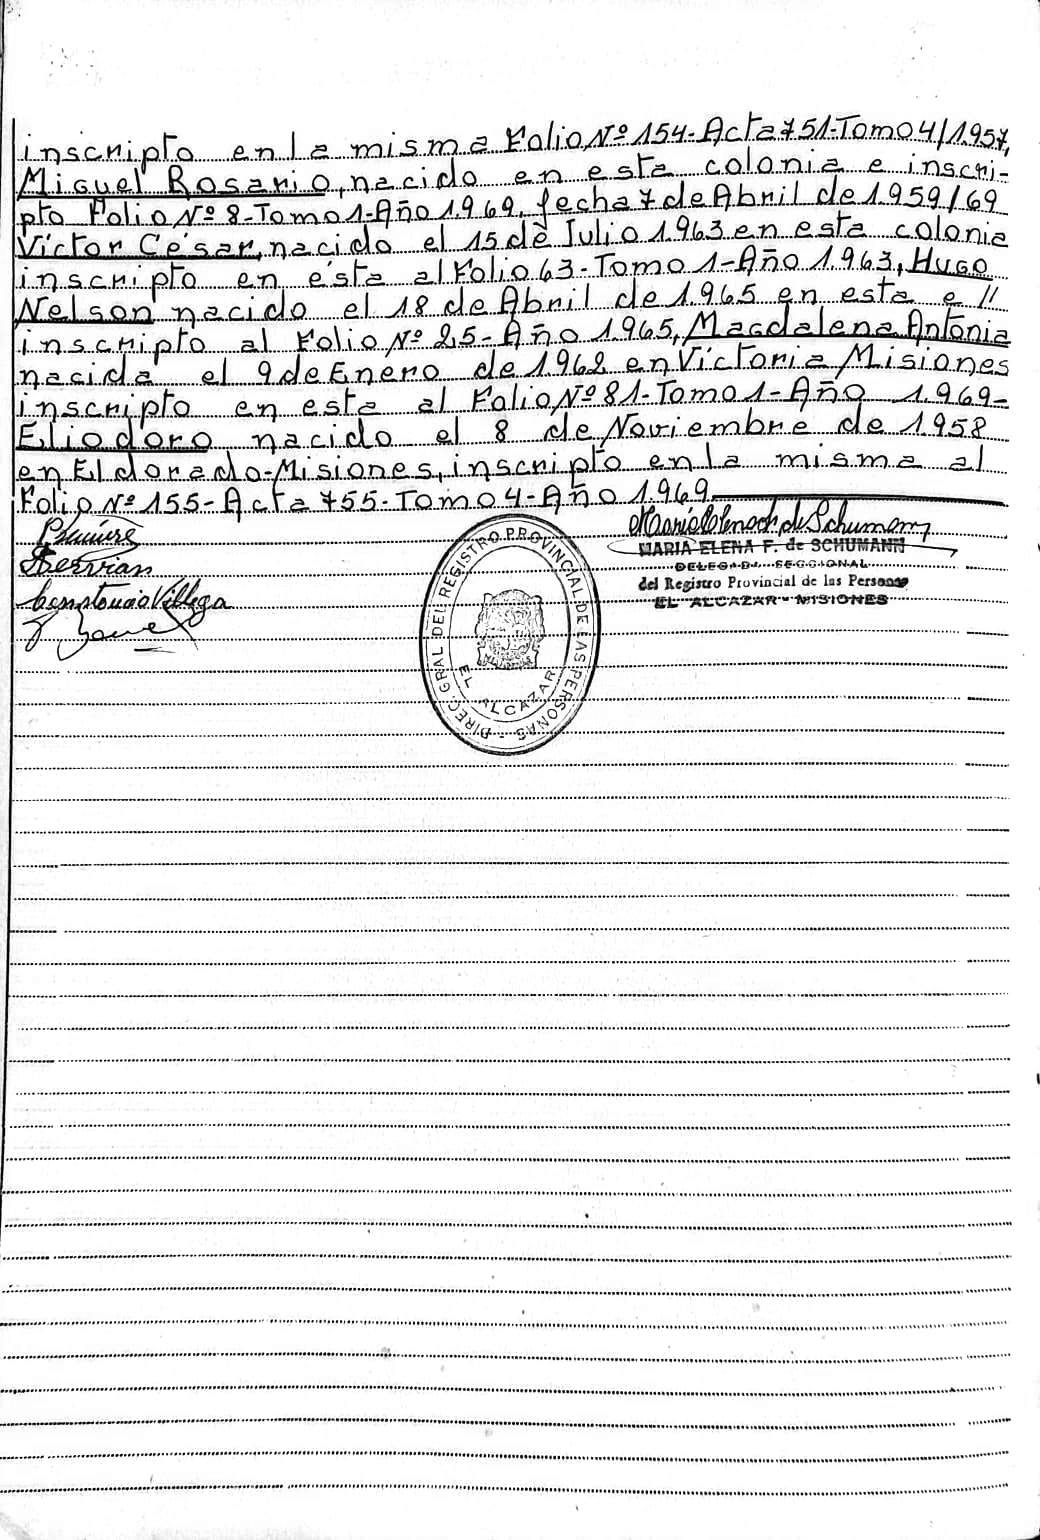 inscripto en la misma Folio Nº 154-Acta 751-Tomo 4/1.957,
Miguel Rosario, nacido en esta colonia e inscri-
pto Folio Nº 8-Tomo 1-Año 1.969, fecha 7 de Abril de 1.959/69
Víctor César, nacido el 15 de Julio 1.963 en esta colonia
inscripto en ésta al Folio 63-Tomo 1-Año 1.963, Hugo
Nelson nacido el 18 de Abril de 1.965 en esta e //
inscripto al Folio Nº 25-Año 1.965, Magdalena Antonia
nacida el 9 de Enero de 1.962 en Victoria Misiones
inscripto en esta al Folio Nº 81-Tomo 1-Año 1.969-
Eliodoro nacido el 8 de Noviembre de 1.958
en Eldorado-Misiones, inscripto en la misma al
Folio Nº 155-Acta 755-Tomo 4-Año 1.969
MARIA ELENA F. de SCHUMANN
DELEGADA SECCIONAL
del Registro Provincial de las Personas
EL ALCAZAR - MISIONES
Servian
Villega
DIREC. GRAL DEL REGISTRO PROVINCIAL DE LAS PERSONAS -
EL ALCAZAR